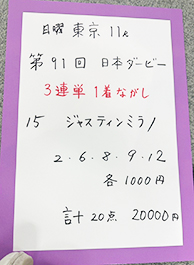 日曜 東京 11R
第91回 日本ダービー
3連単 1着ながし
15 ジャスティンミラノ
2.6.8.9.12
各1000円
計20点 20000円